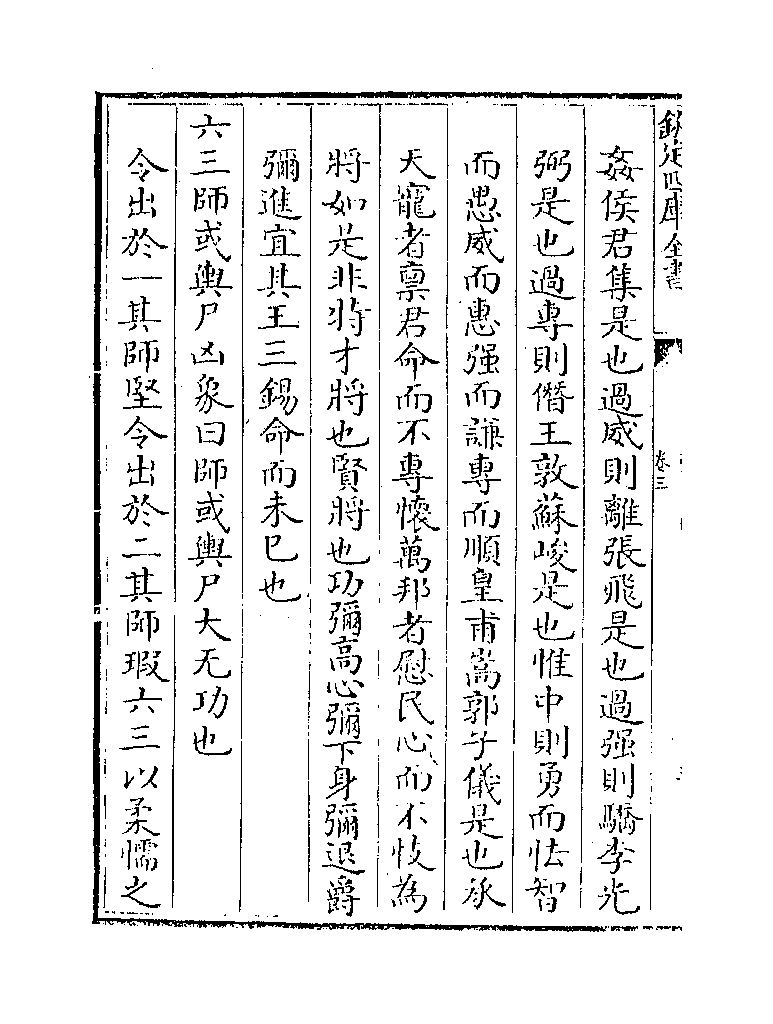 欽定四庫全書
卷三
姦侯君集是也過威則離張飛是也過强則驕李光
弼是也過專則僭王敦蘇峻是也惟中則勇而怯智
而愚威而惠强而謙專而順皇甫嵩郭子儀是也承
天寵者禀君命而不專懷萬邦者慰民心而不忮為
將如是非將才將也賢將也功彌高心彌下身彌退爵
彌進宜其王三錫命而未已也
六三師或輿尸凶象曰師或輿尸大无功也
令出於一其師堅令出於二其師瑕六三以柔懦之